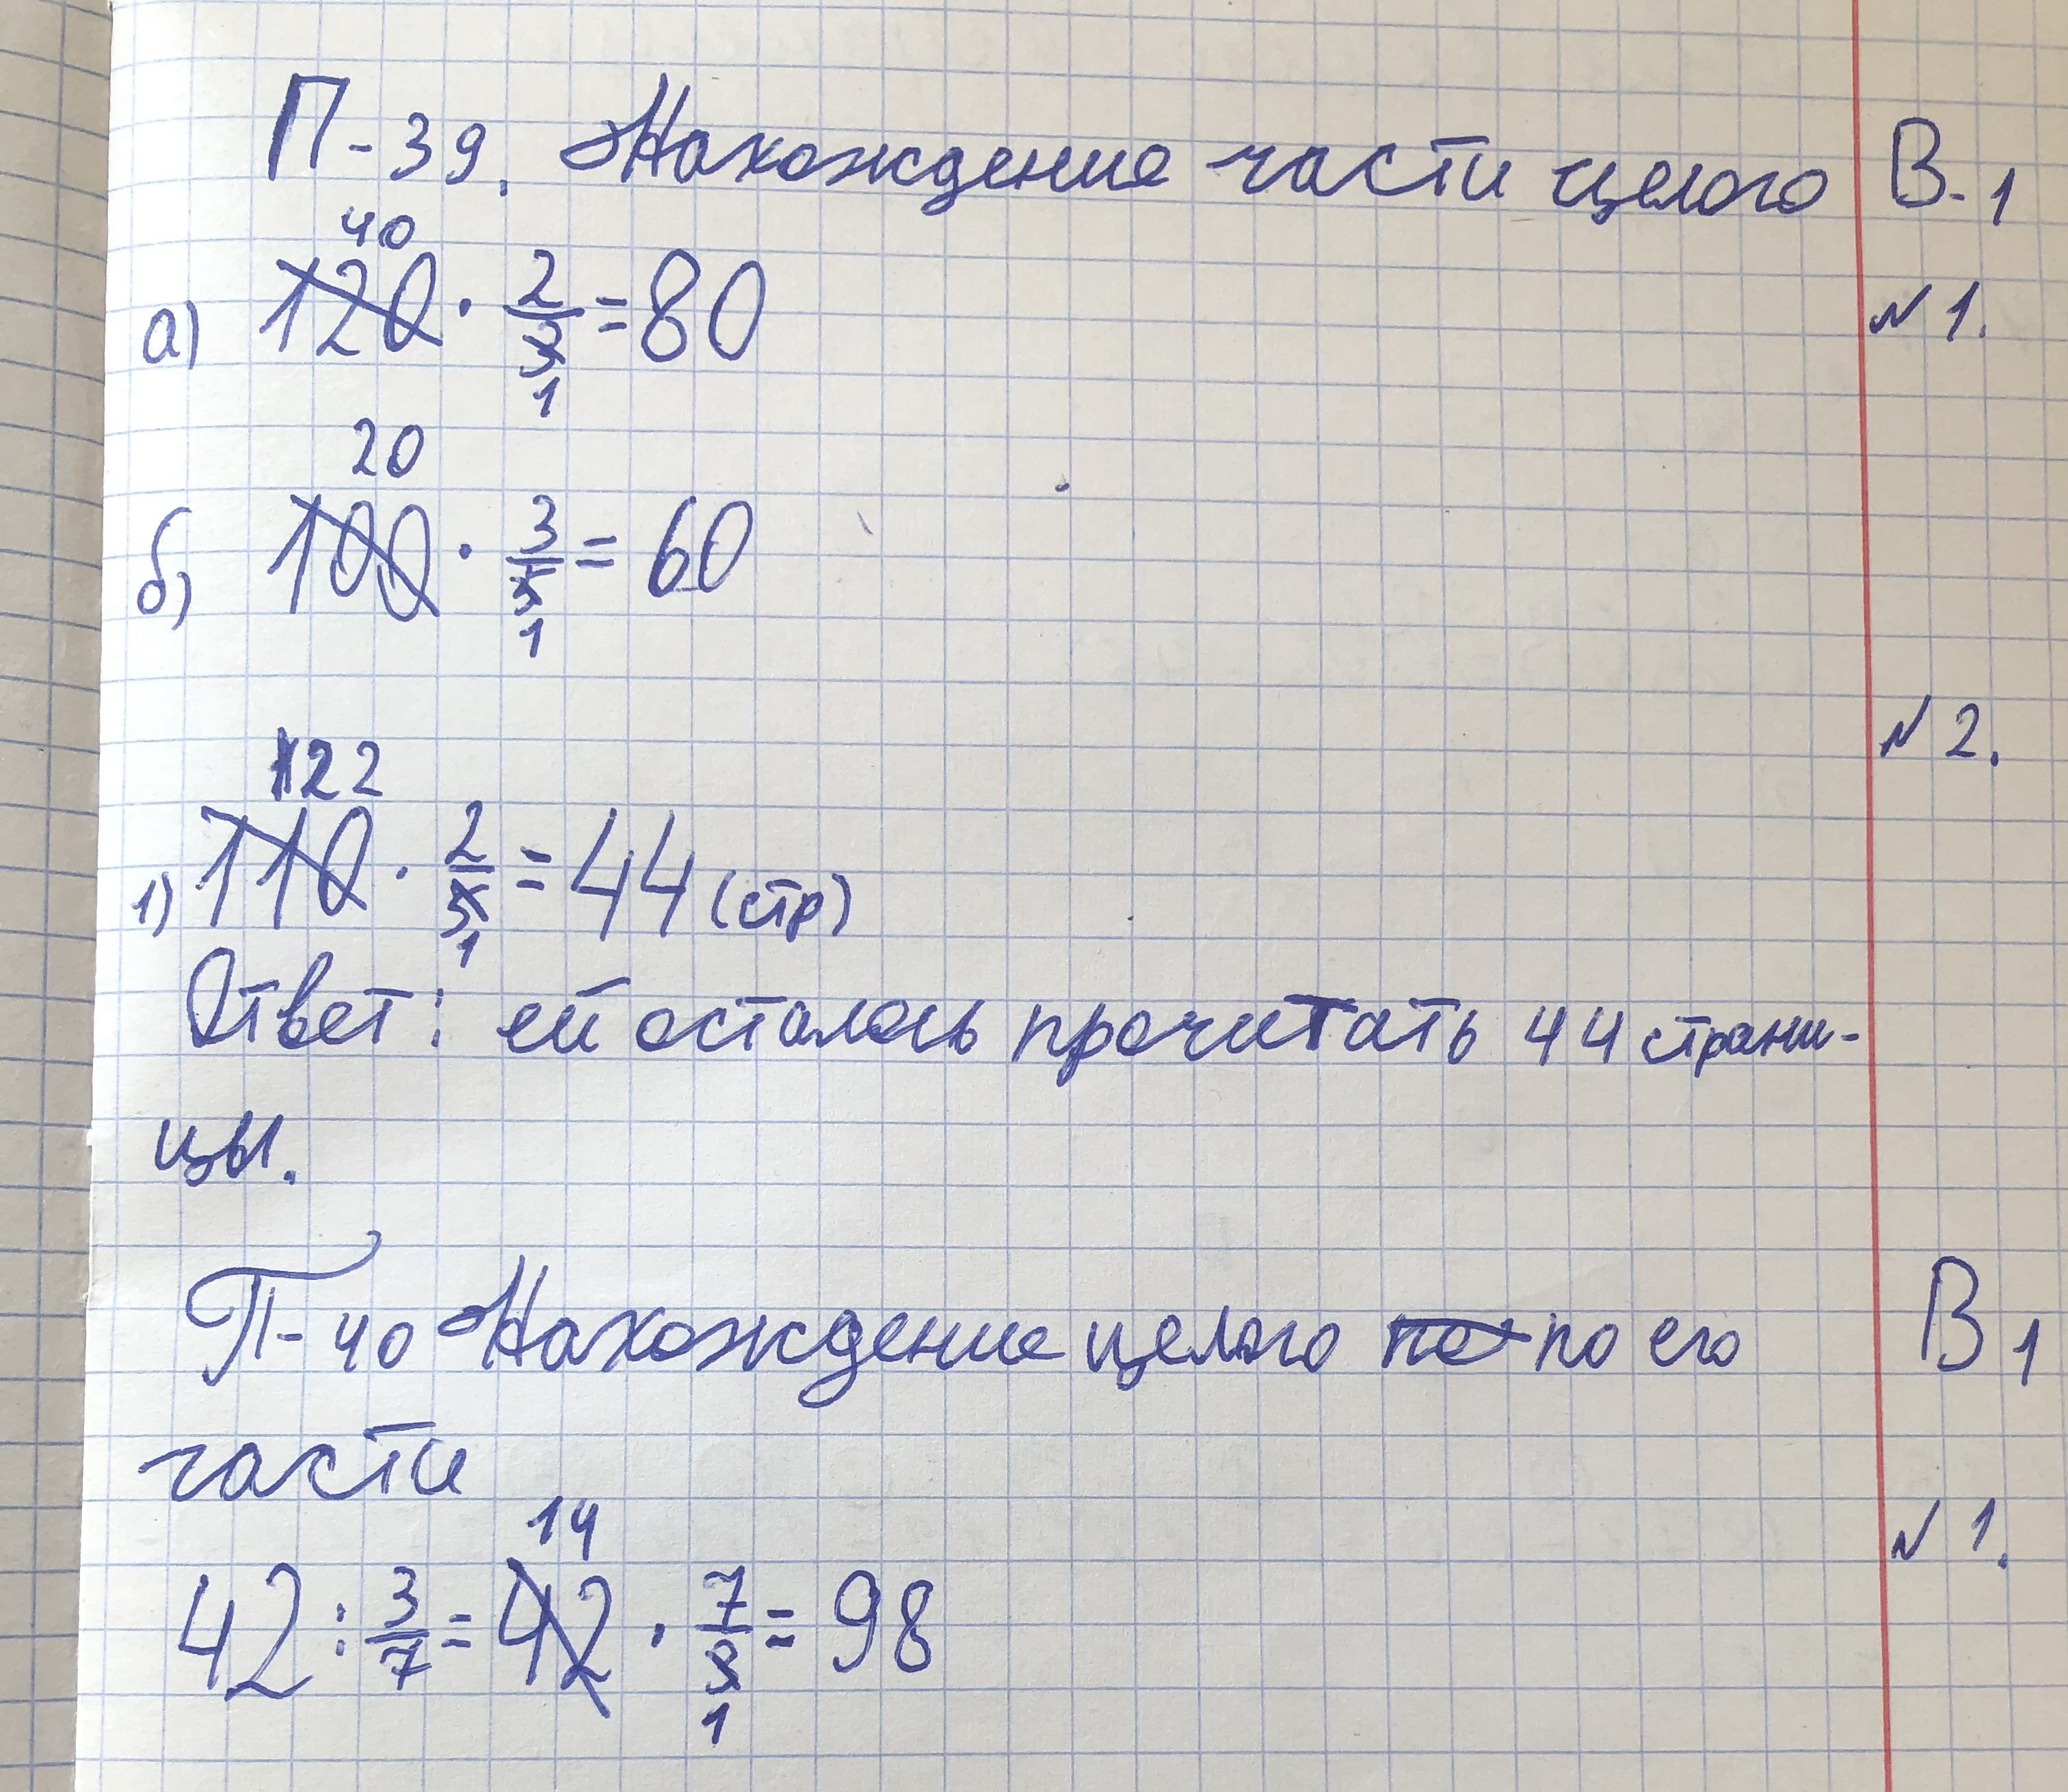 П-39. Нахождение части целого В-1
40
а) 120 · 2/3 = 80 № 1.
1
20
б) 100 · 3/5 = 60
1
№ 2.
122
1) 110 · 2/5 = 44 (стр)
1
Ответ: ей осталось прочитать 44 страни-
цы.
П-40 Нахождение целого по по его В 1
части
14 № 1.
42 : 3/7 = 42 · 7/3 = 98
1